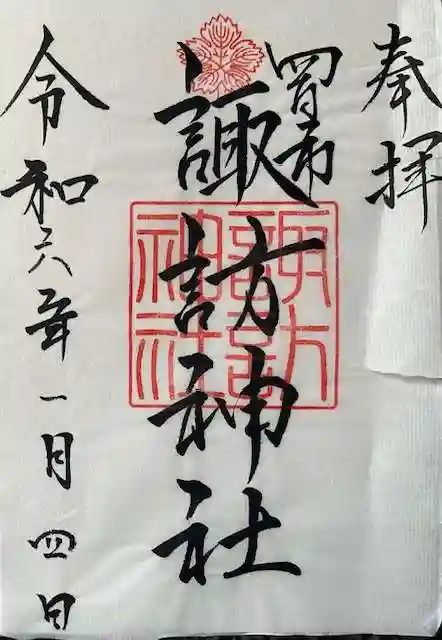 奉拝
四日市
諏訪神社
諏訪
神社
令和六年一月四日